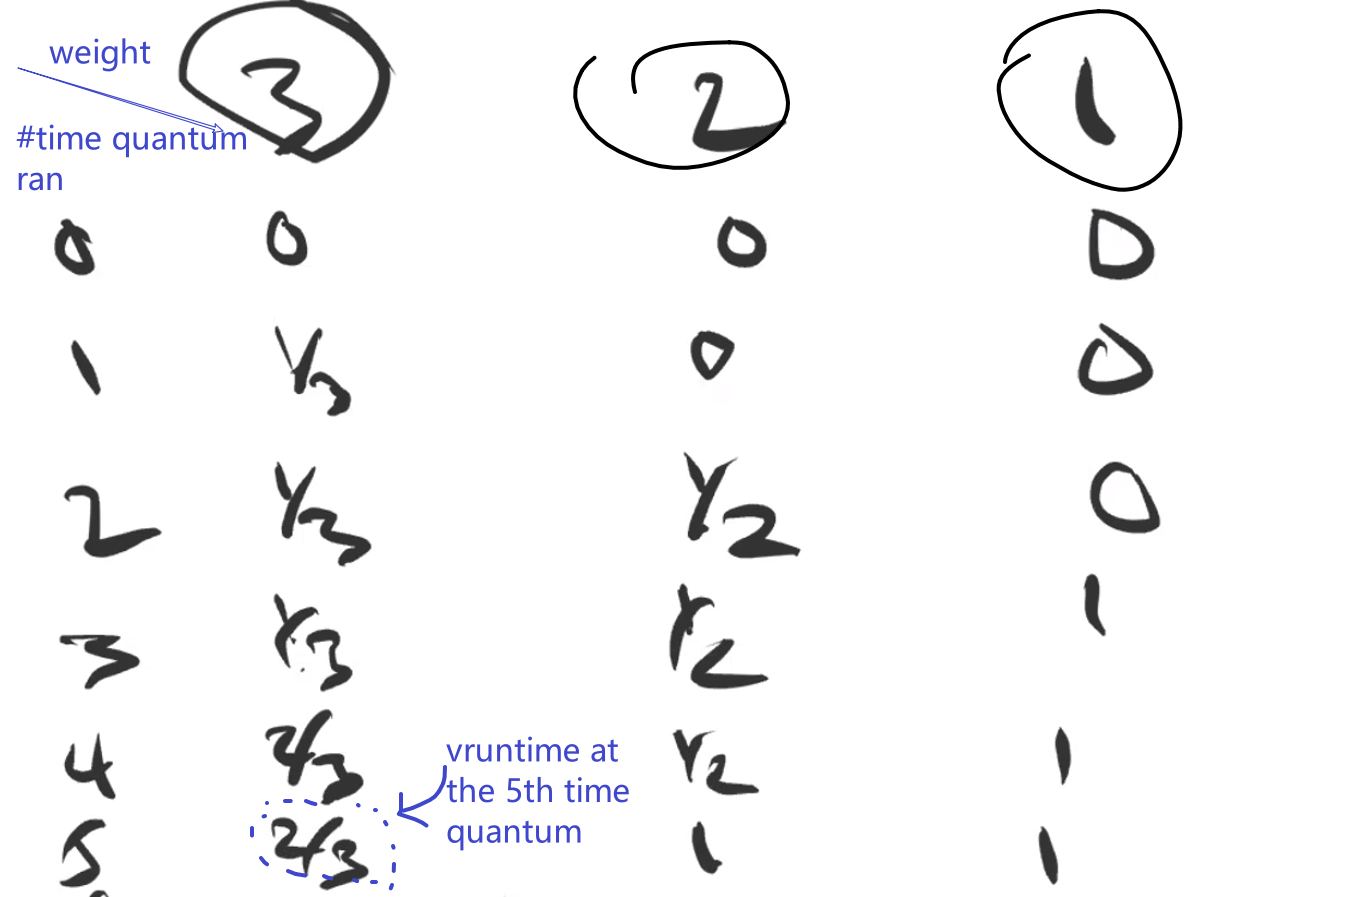 weight
3 2 1
#time quantum
ran
0 0 0 0
1 1/3 0 0
2 1/3 1/2 0
3 1/3 1/2 1
4 2/3 1/2 1
vruntime at
the 5th time
quantum
5 2/3 1 1